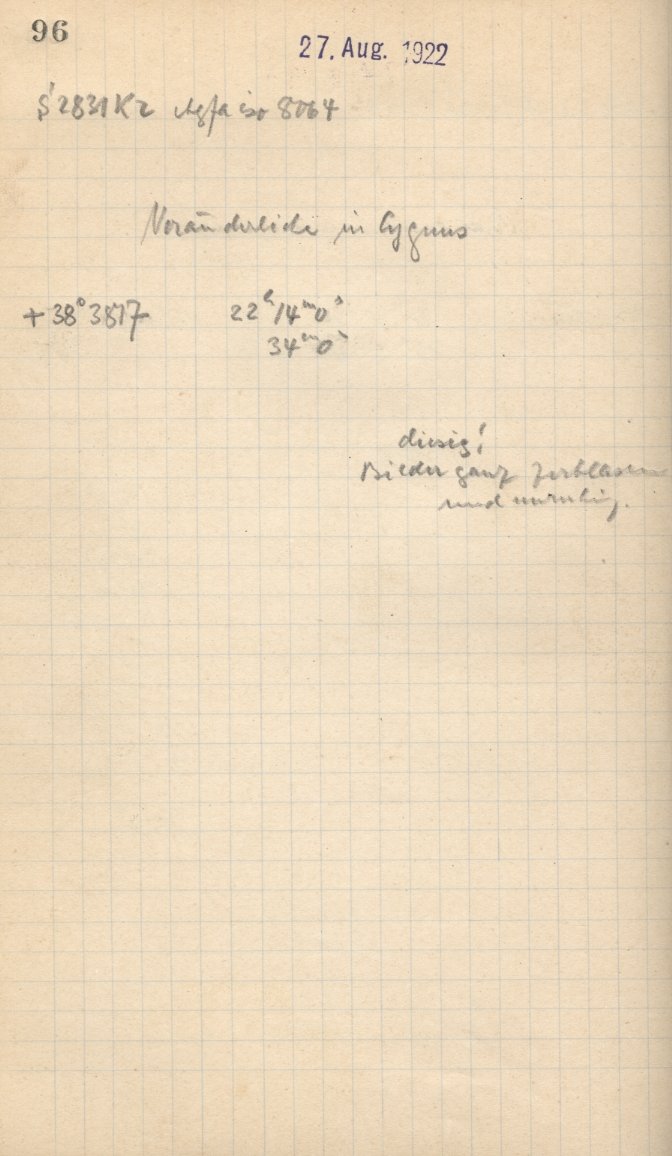 96
27. Aug. 1922
S 2831 Kz Agfa iso 8064
Veränderliche in Cygnus
+38° 3817 22h 14m 0s
34m 0s
diesig!
Bilder ganz zerblasen
und unruhig.